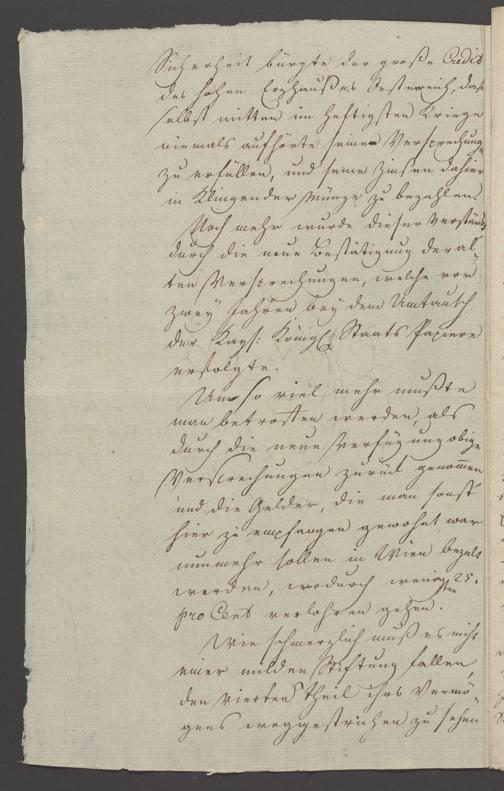 Sicherheit bürgte der große Credit
des hohen Erzhaußes Oestereich, daß
selbst mitten im heftigsten Kriege
niemals aufhörte seine Versprechung
zu erfüllen, und seine Zinsen dahier
in Klingender Münze zu bezahlen.
Noch mehr wurde dieser verstärkt
durch die neue Bestätigung der al-
ten Versprechungen, welche vor
zwey Jahren bey dem Umtausch
der Kays: Königl: Staats Papiere
erfolgte.
Um so viel mehr mußte
man betroffen werden, als
durch die neue Verfügung obige
Versprechungen zurück genommen
und die Gelder, die man sonst
hier zu empfangen gewohnt war
nunmehr sollen in Wien bezalt
werden, wodurch wenigsten 25.
pro Cent verlohren gehen.
Wie schmerzlich muß es nicht
einer milden Stiftung fallen,
den vierten Theil ihrs Vermö-
gens weggestrichen zu sehen